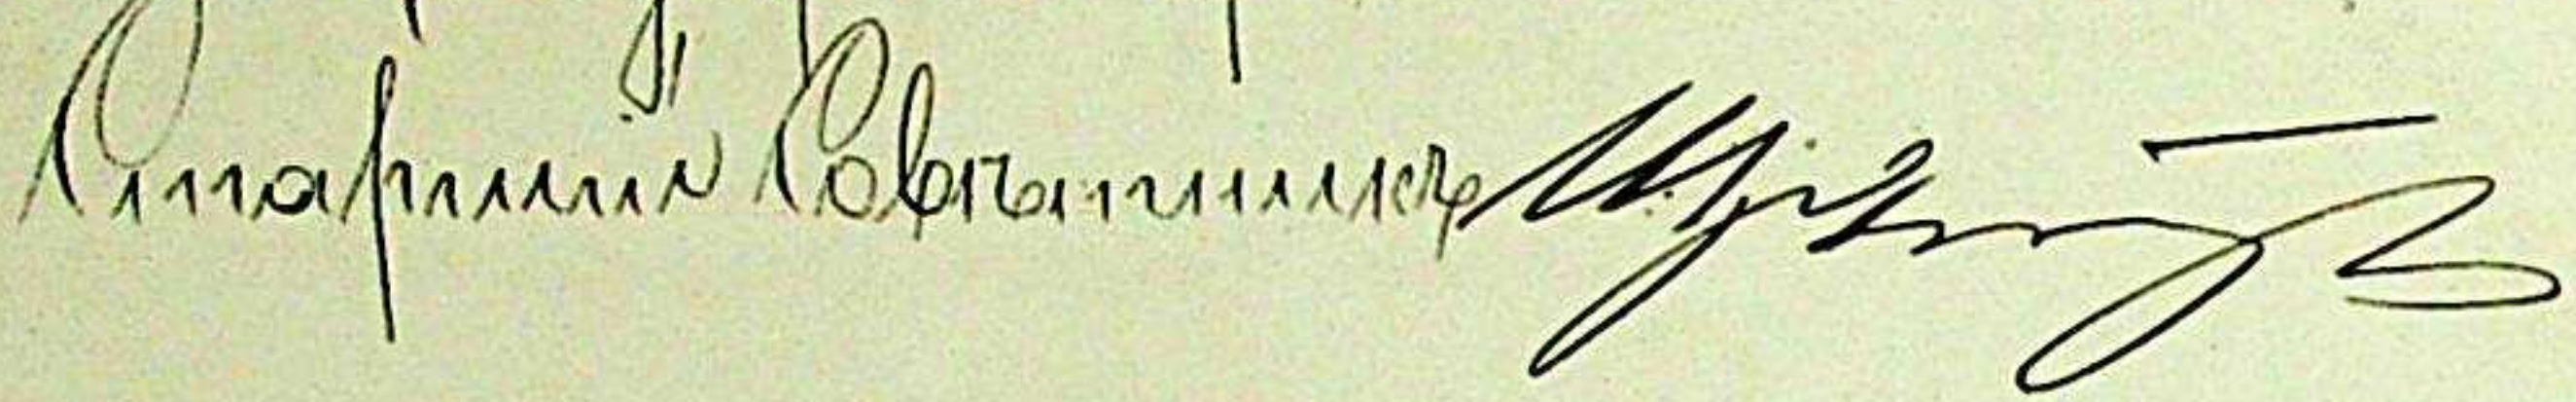 Старшій Совѣтникъ